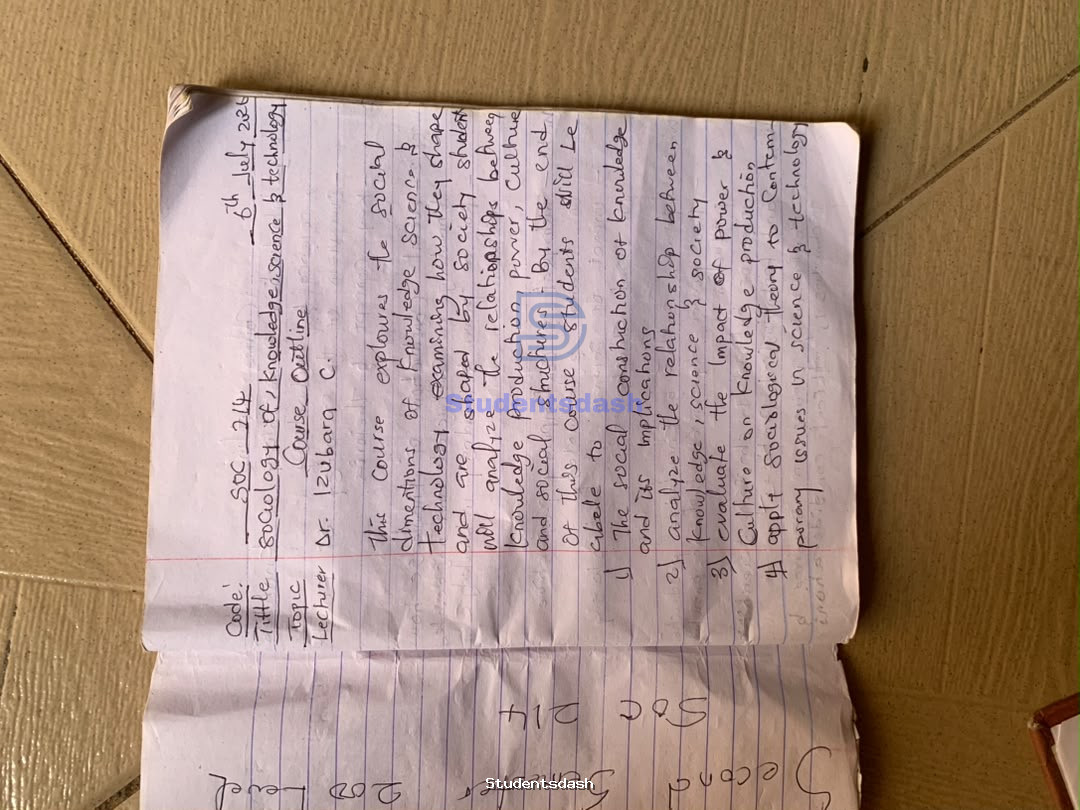 6th July 2026
Code: SOC 214
Tittle sociology of, knowledge, science & technology
Topic Course Outline
Lecturer Dr. Izubara C.
This course exploures the social
dimentions of knowledge science &
Technology examining how they shape
and are shaped by society student
will analyze the relationships between
knowledge production power, culture
and social structures. By the end
of this course students will be
abele to
1) The social construction of knowledge
and its implications
2) analyze the relationship between
knowledge, science & society
3) evaluate the Impact of power &
Culture on knowledge production
4) apply sociological theory to Contem-
porary issues in science & technology
Studentsdash
Level
200
Second
Soc
Studentsdash